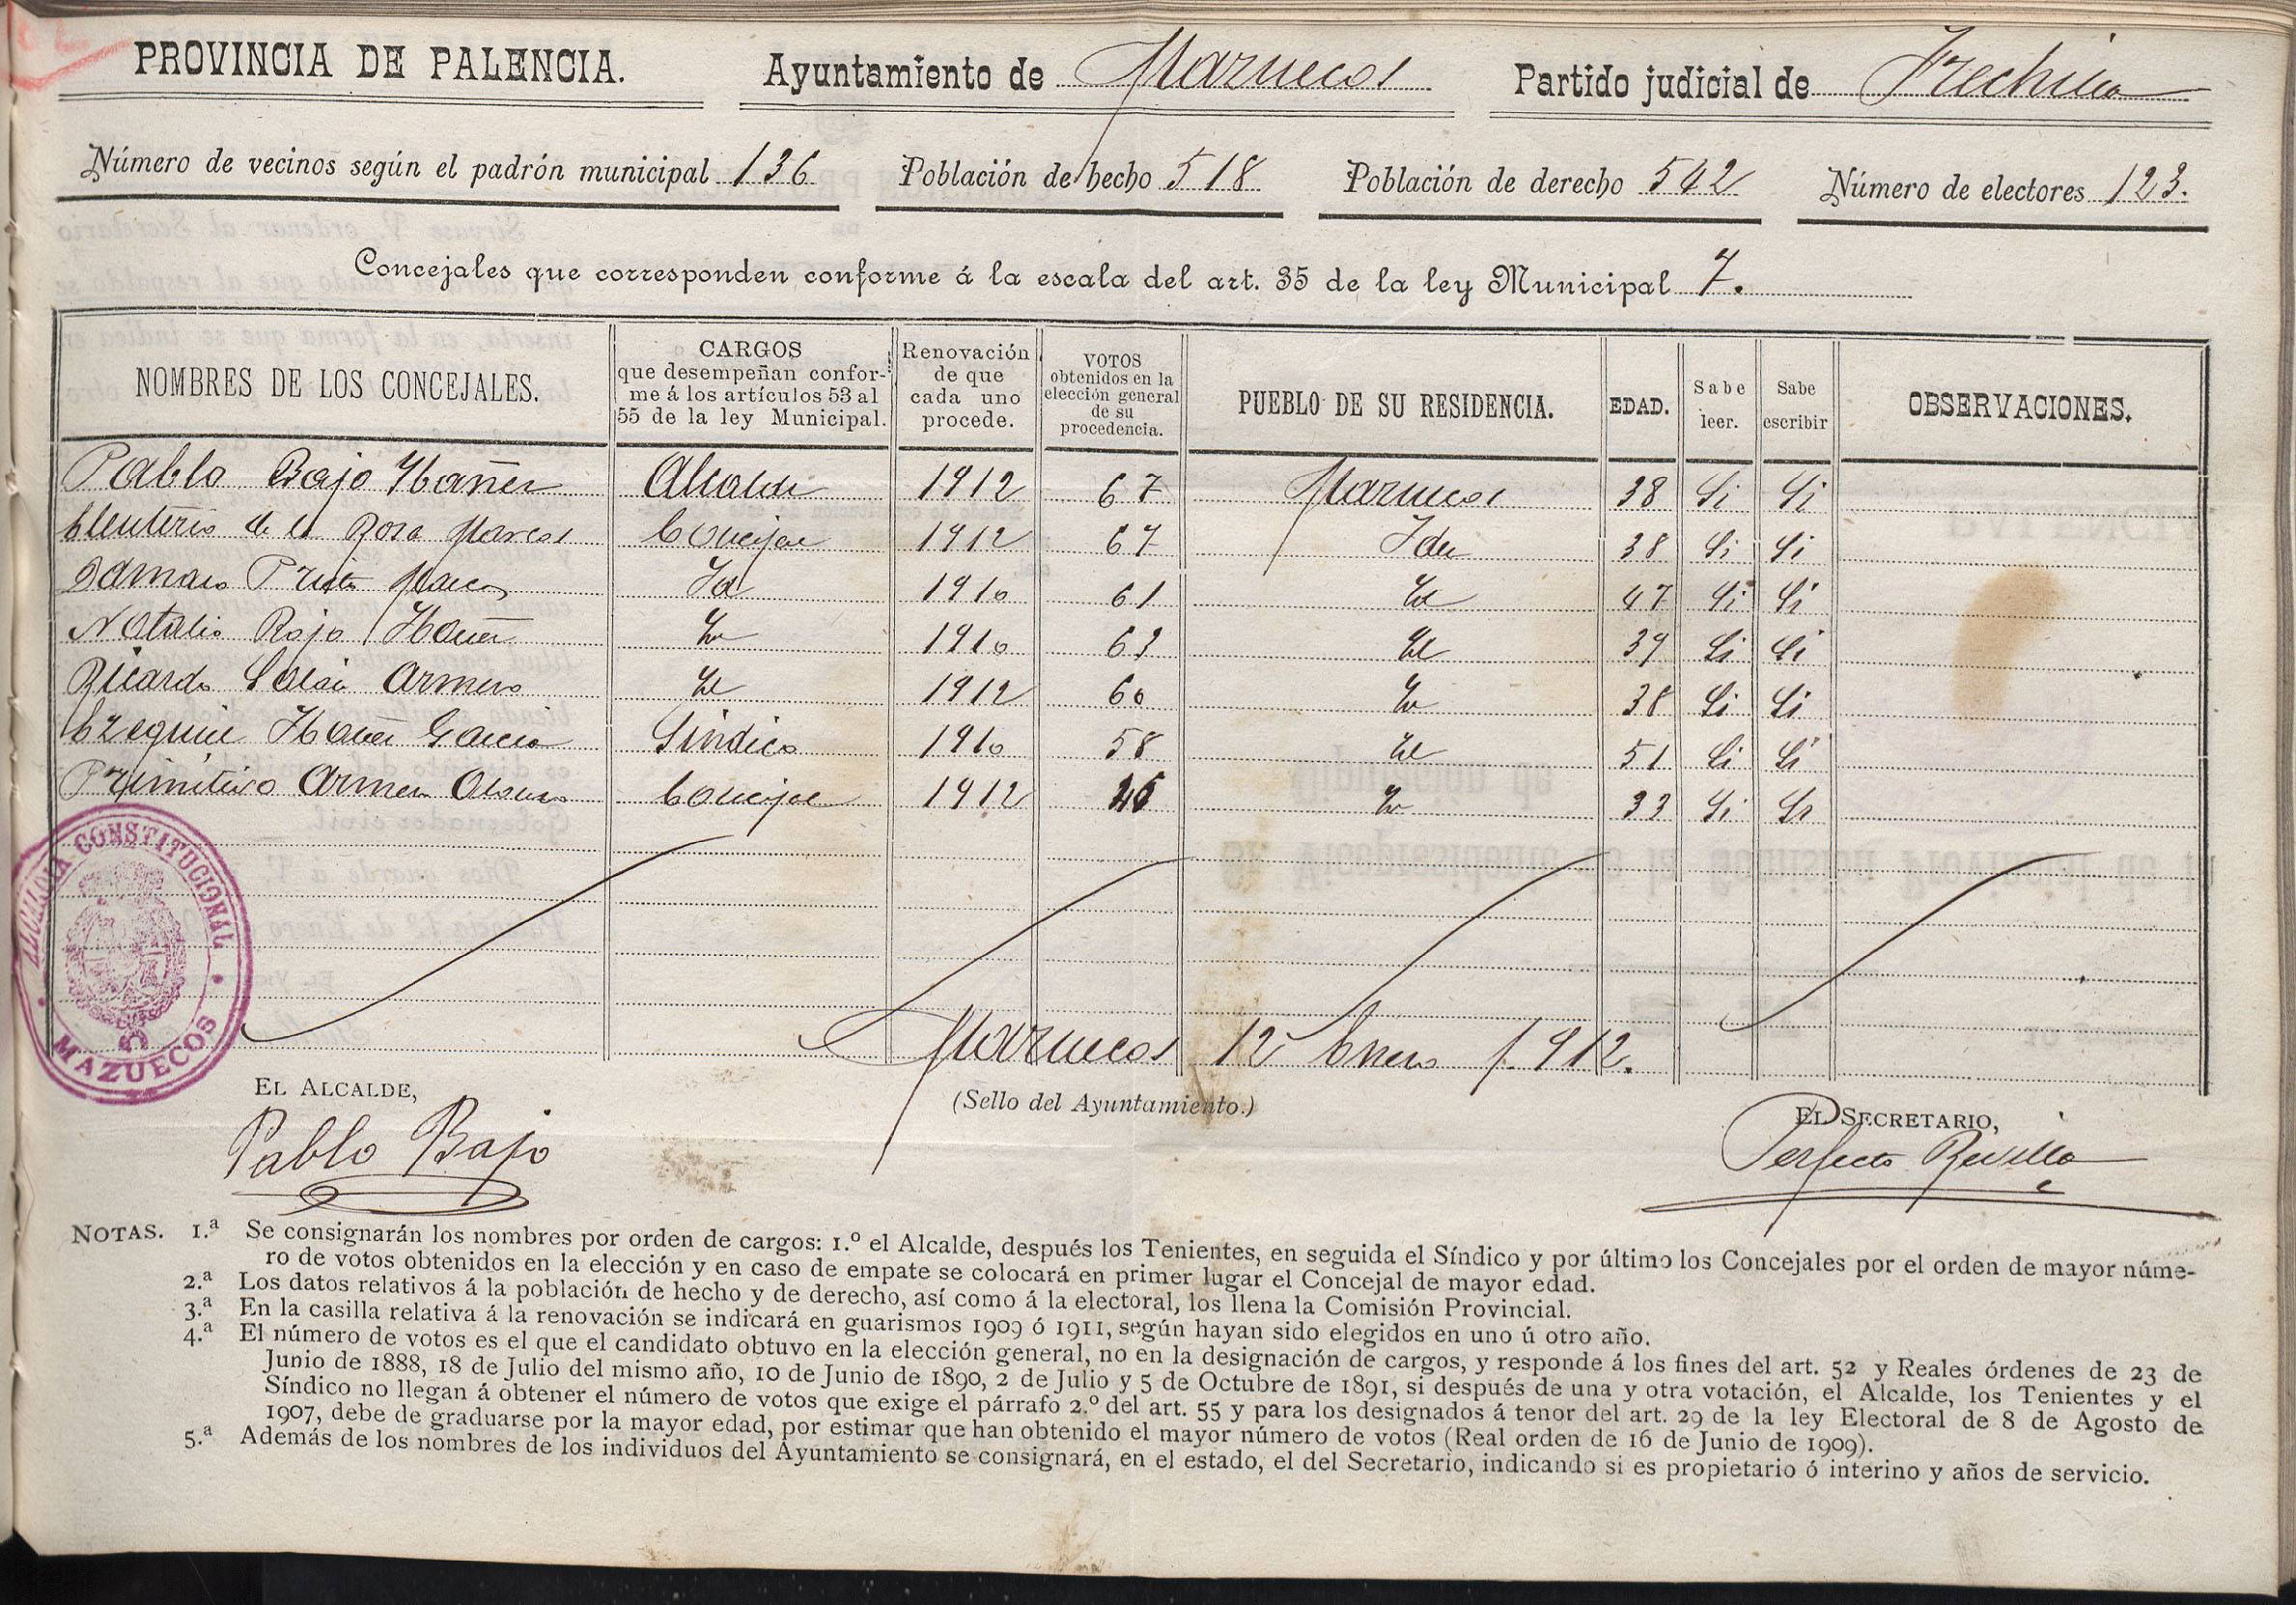 PROVINCIA DE PALENCIA. Ayuntamiento de Mazuecos Partido judicial de Frechilla
Número de vecinos según el padrón municipal 136 Población de hecho 518 Población de derecho 542 Número de electores 123.
Concejales que corresponden conforme á la escala del art. 35 de la ley Municipal 7.
NOMBRES DE LOS CONCEJALES. CARGOS que desempeñan confor-me á los artículos 53 al 55 de la ley Municipal. Renovación de que cada uno procede. VOTOS obtenidos en la elección general de su procedencia. PUEBLO DE SU RESIDENCIA. EDAD. Sabe leer. Sabe escribir OBSERVACIONES.
Pablo Bajo Ybañez Alcalde 1912 67 Mazuecos 38 Si Si
Eleuterio de la Rosa Marcos Concejal 1912 67 Idem 38 Si Si
Damaso Prieto Marcos Id 1910 61 Id 47 Si Si
Natalio Rojo Ibañez Id 1910 61 Id 39 Si Si
Ricardo Armero Id 1912 60 Id 38 Si Si
Ezequiel Ibañez Garcia Sindico 1910 58 Id 51 Si Si
Primitivo Armero Concejal 1912 Id 33 Si Si
ALCALDIA CONSTITUCIONAL
MAZUECOS
Mazuecos 12 Enero 1.912.
EL ALCALDE, (Sello del Ayuntamiento.) EL SECRETARIO,
Pablo Bajo Perfecto Revilla
NOTAS. 1.ª Se consignarán los nombres por orden de cargos: 1.º el Alcalde, después los Tenientes, en seguida el Síndico y por último los Concejales por el orden de mayor núme-
ro de votos obtenidos en la elección y en caso de empate se colocará en primer lugar el Concejal de mayor edad.
2.ª Los datos relativos á la población de hecho y de derecho, así como á la electoral, los llena la Comisión Provincial.
3.ª En la casilla relativa á la renovación se indicará en guarismos 1909 ó 1911, según hayan sido elegidos en uno ú otro año.
4.ª El número de votos es el que el candidato obtuvo en la elección general, no en la designación de cargos, y responde á los fines del art. 52 y Reales órdenes de 23 de
Junio de 1888, 18 de Julio del mismo año, 10 de Junio de 1890, 2 de Julio y 5 de Octubre de 1891, si después de una y otra votación, el Alcalde, los Tenientes y el
Síndico no llegan á obtener el número de votos que exige el párrafo 2.º del art. 55 y para los designados á tenor del art. 29 de la ley Electoral de 8 de Agosto de
1907, debe de graduarse por la mayor edad, por estimar que han obtenido el mayor número de votos (Real orden de 16 de Junio de 1909).
5.ª Además de los nombres de los individuos del Ayuntamiento se consignará, en el estado, el del Secretario, indicando si es propietario ó interino y años de servicio.